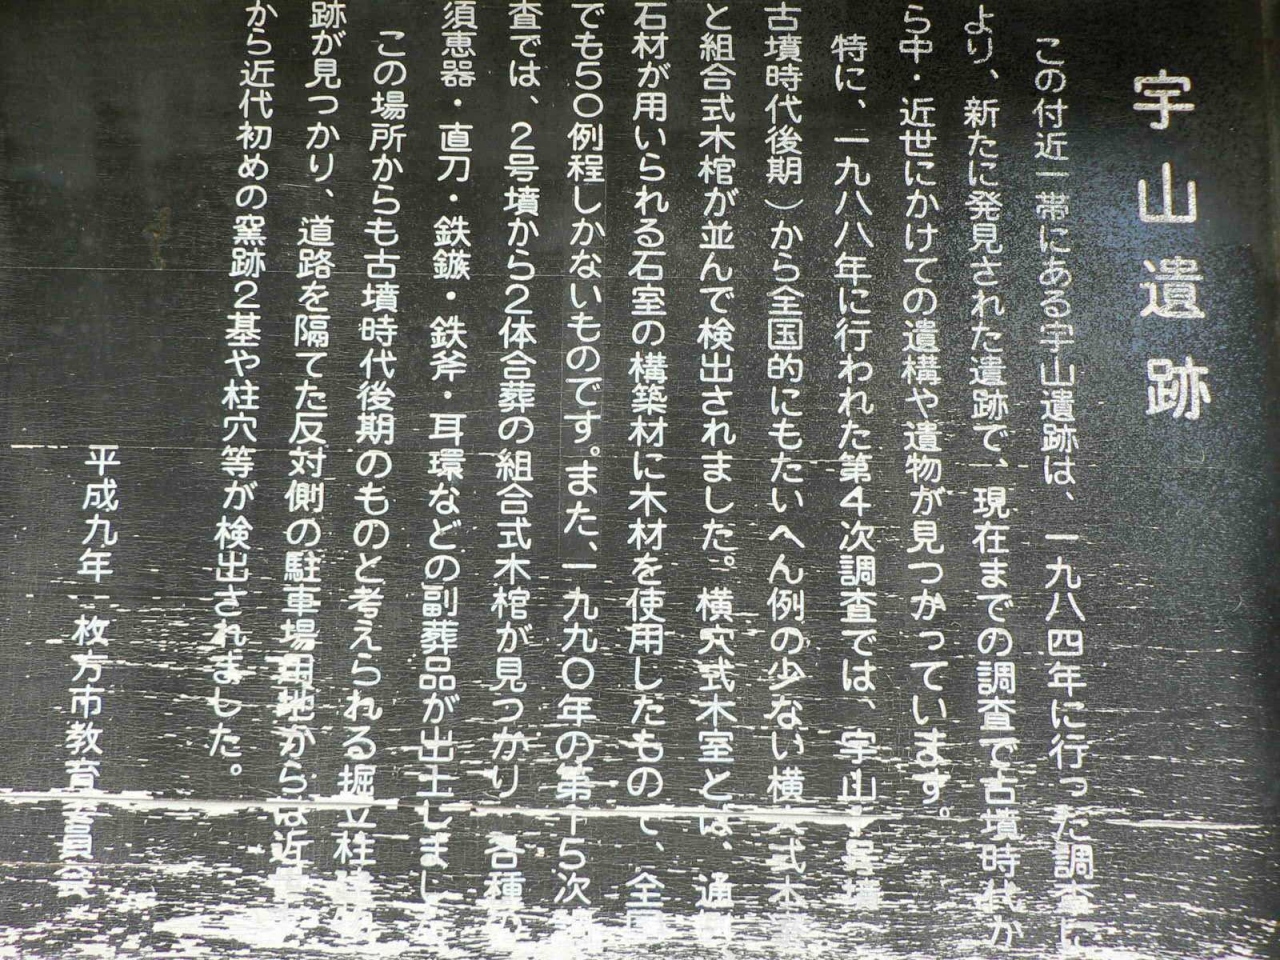 宇山遺跡
この付近一帯にある宇山遺跡は、一九八四年に行った調査に
より、新たに発見された遺跡で、現在までの調査で古墳時代か
ら中・近世にかけての遺構や遺物が見つかっています。
特に、一九八八年に行われた第4次調査では、宇山 号墳
古墳時代後期）から全国的にもたいへん例の少ない横穴式木
と組合式木棺が並んで検出されました。横穴式木室とは、通
石材が用いられる石室の構築材に木材を使用したもので、全国
でも50例程しかないものです。また、一九九〇年の第 5次
査では、2号墳から2体合葬の組合式木棺が見つかり 各種の
須恵器・直刀・鉄鏃・鉄斧・耳環などの副葬品が出土しまし
この場所からも古墳時代後期のものと考えられる掘立柱
跡が見つかり、道路を隔てた反対側の駐車場用地からは近
から近代初めの窯跡2基や柱穴等が検出されました。
平成九年 枚方市教育委員会